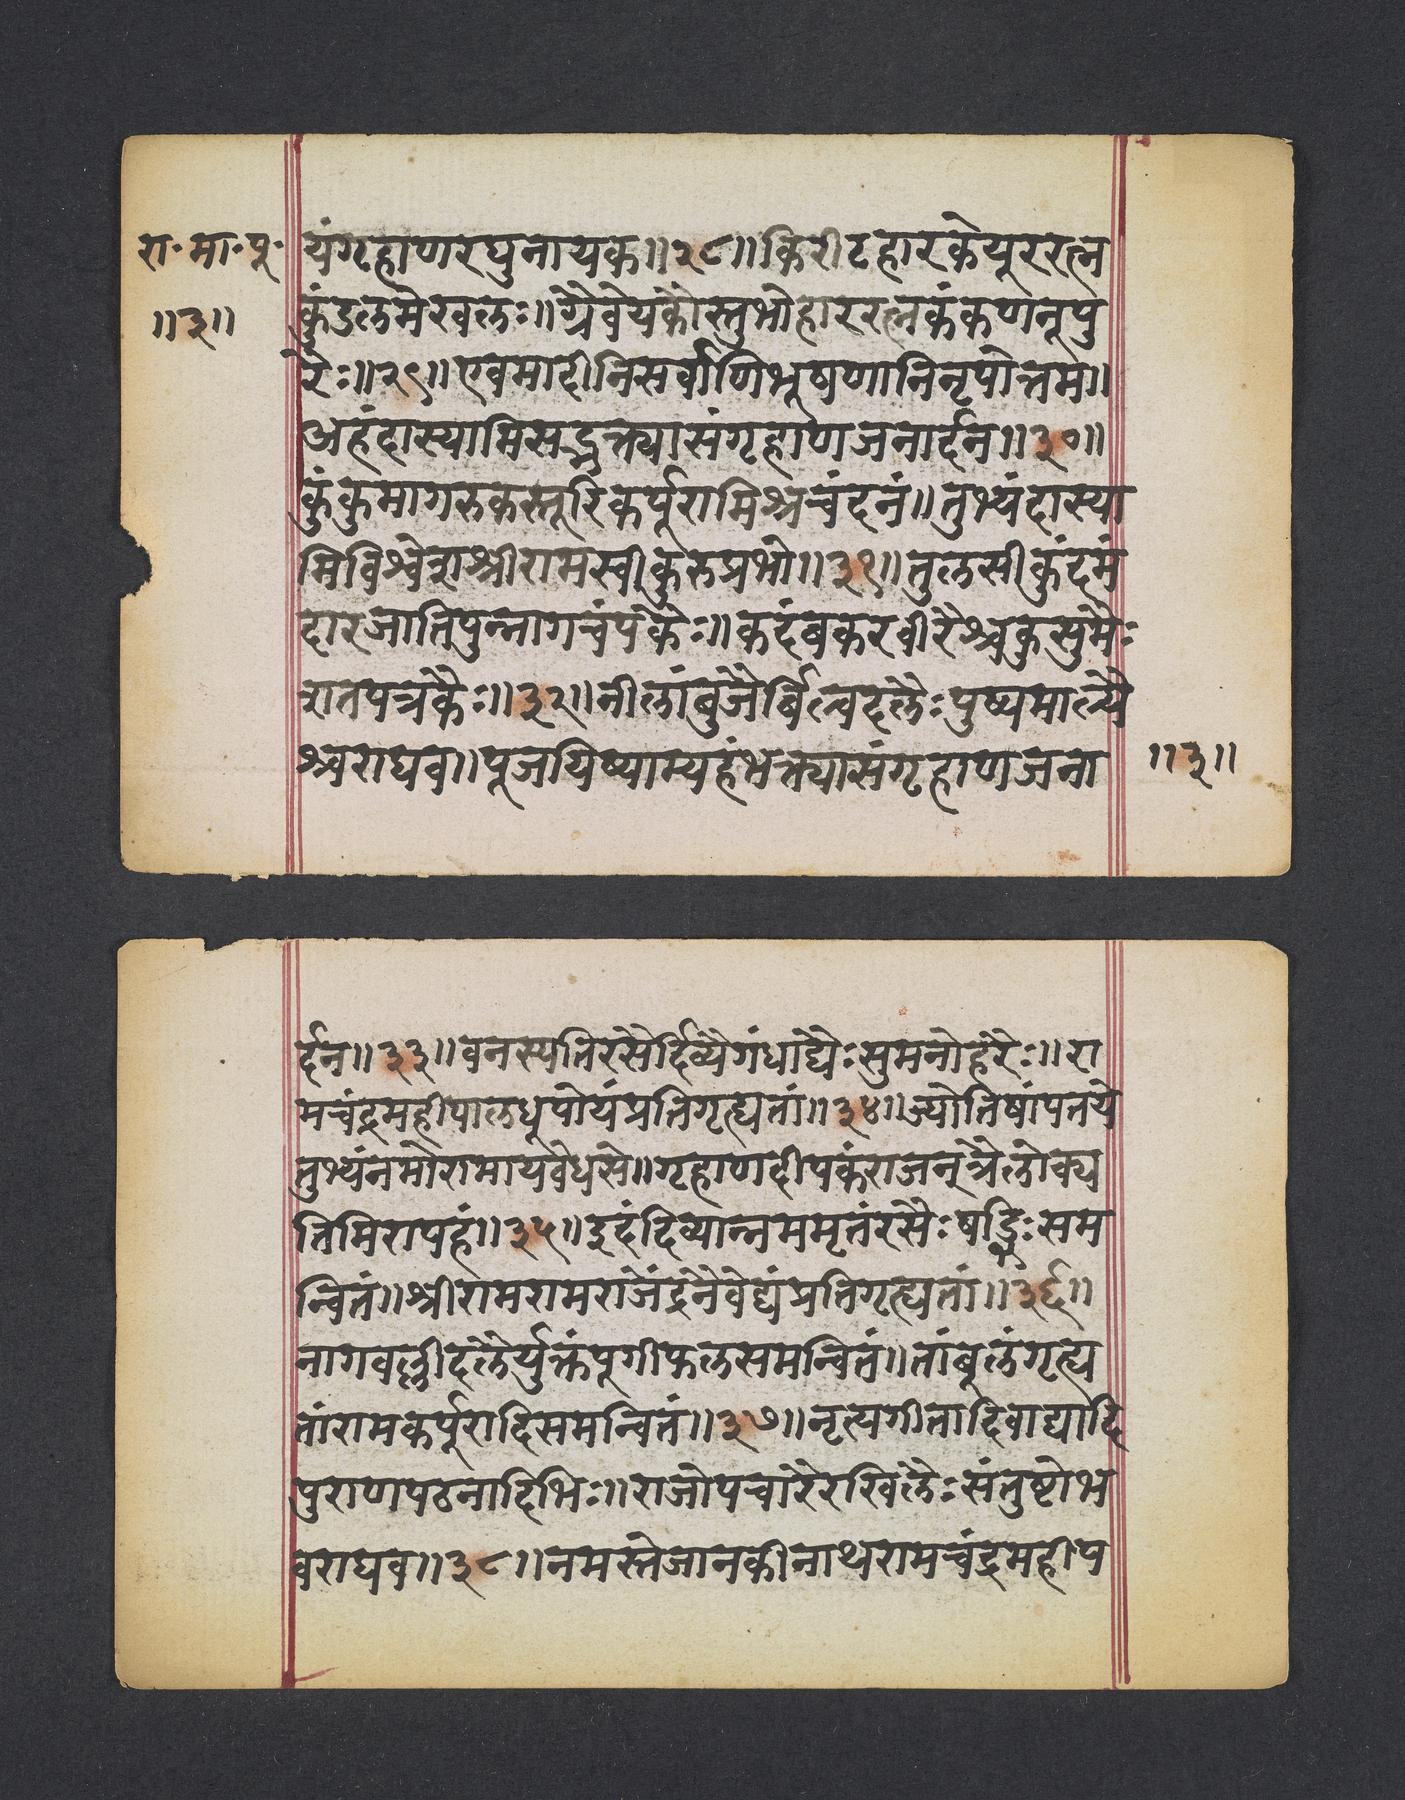 रा॰मा॰पू॰
॥३॥
यंगृहाणरघुनायक॥२८॥किरीटहारकेयूररत्न
कुंडलमेखल:॥ग्रैवेयकौस्तुभोहाररत्नकंकणनूपु
रै:॥२९॥एवमादीनिसर्वाणिभूषणानिनृपोत्तम॥
अहंदास्यामिसद्भक्त्यासंगृहाणजनार्दन॥३०॥
कुंकुमागरुकस्तूरिकर्पूरामिश्रचंदनं॥तुभ्यंदास्या
मिविश्वेशश्रीरामस्वीकुरुप्रभो॥३१॥तुलसीकुंदमं
दारजातिपुन्नागचंपकै:॥कदंबकरवीरैश्चकुसुमै:
शतपत्रकै:॥३२॥नीलांबुजैर्बिल्वदलै:पुष्पमाल्यै
श्चराघव॥पूजयिष्याम्यहंभक्त्यासंगृहाणजना
॥३॥
र्दन॥३३॥वनस्पतिरसैर्दिव्यैगंधाद्यै:सुमनोहरै:॥रा
मचंद्रमहीपालधूपोयंप्रतिगृह्यतां॥३४॥ज्योतिषांपतये
तुभ्यंनमोरामायवेधसे॥गृहाणदीपकंराजन्त्रैलोक्य
तिमिरापहं॥३५॥इदंदिव्यान्नममृतंरसै:षड्भि:सम
न्वितं॥श्रीरामरामराजेंद्रनैवेद्यंप्रतिगृह्यतां॥३६॥
नागवल्लीदलैर्युक्तंपूगीफलसमन्वितं॥तांबूलंगृह्य
तांरामकर्पूरादिसमन्वितं॥३७॥नृत्यगीतादिवाद्यादि
पुराणपठनादिभि:॥राजोपचारैरखिलै:संतुष्टोभ
वराघव॥३८॥नमस्तेजानकीनाथरामचंद्रमहीप